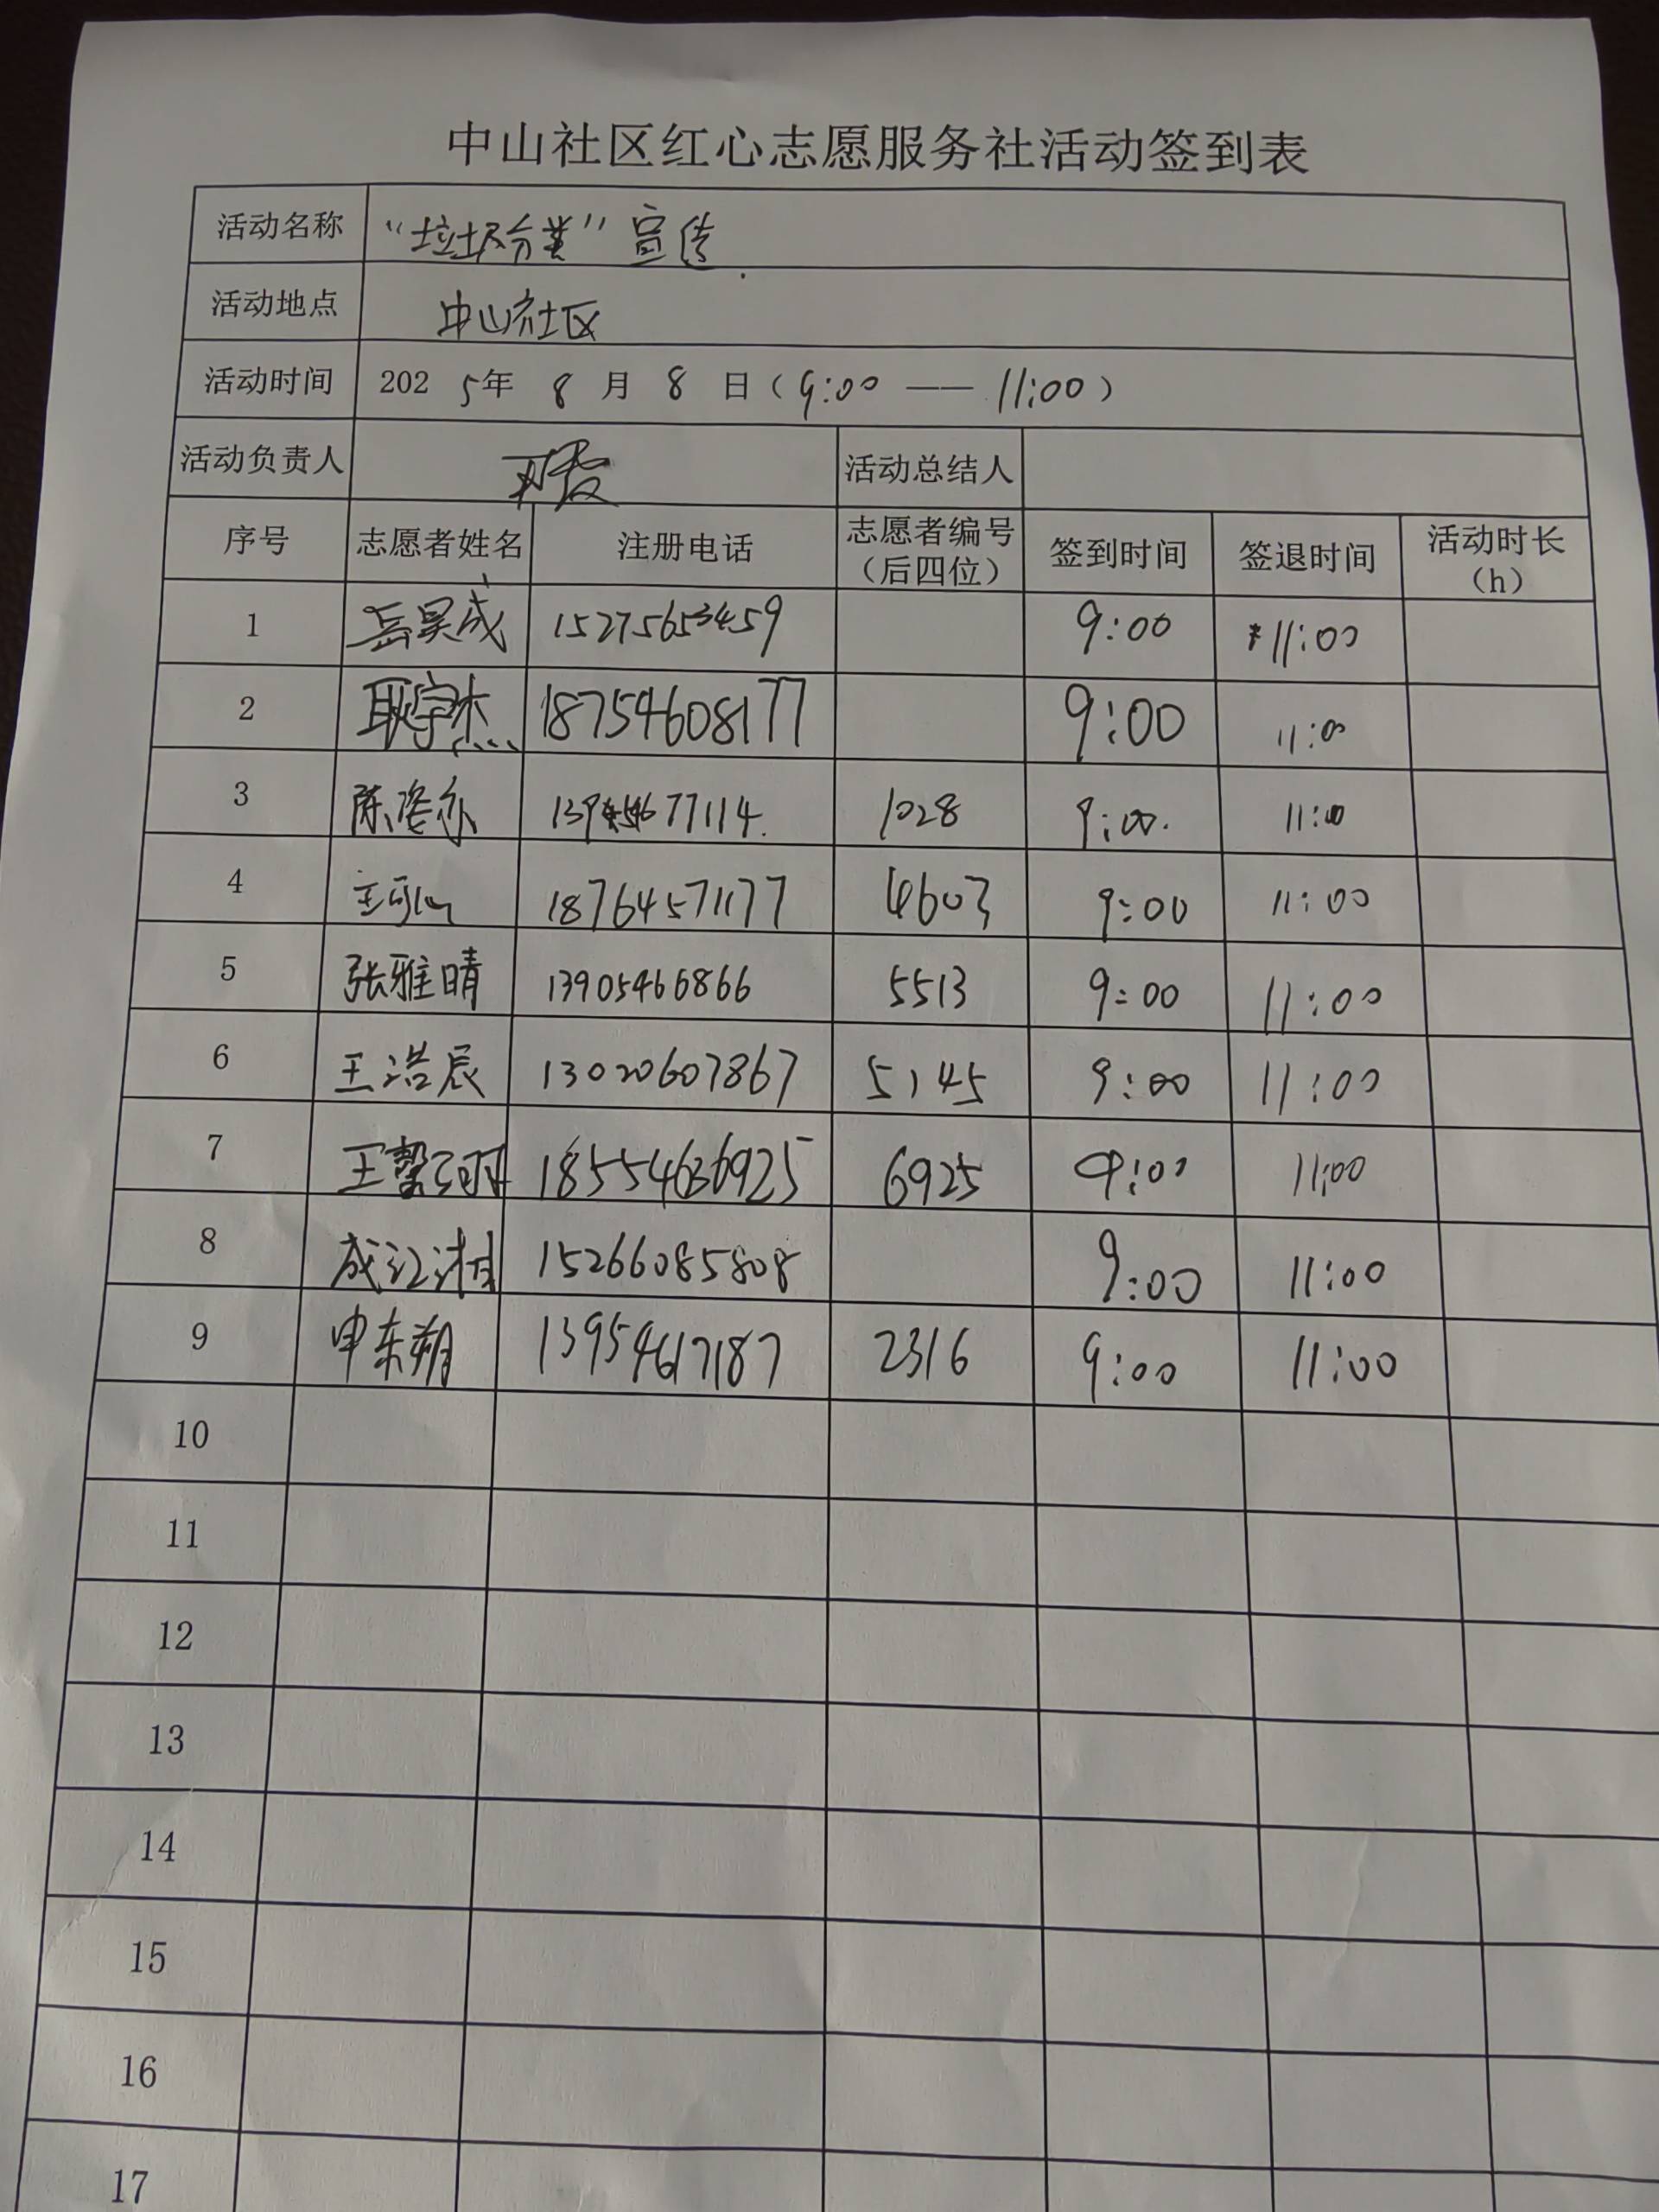 中山社区红心志愿服务社活动签到表
活动名称 “垃圾分类”宣传
活动地点 中山社区
活动时间 2025年 8 月 8 日（9:00 —— 11:00）
活动负责人 活动总结人
序号 志愿者姓名 注册电话 志愿者编号（后四位） 签到时间 签退时间 活动时长（h）
1 岳昊成 15275653459 9:00 11:00
2 耿宇杰 18754608177 9:00 11:00
3 陈姿亦 1028 9:00 11:00
4 王可心 18764571177 4603 9:00 11:00
5 张雅晴 13905466866 5513 9:00 11:00
6 王浩辰 13020607867 5145 9:00 11:00
7 18554636925 6925 9:00 11:00
8 15266085808 9:00 11:00
9 申东朔 13954617187 2316 9:00 11:00
10
11
12
13
14
15
16
17